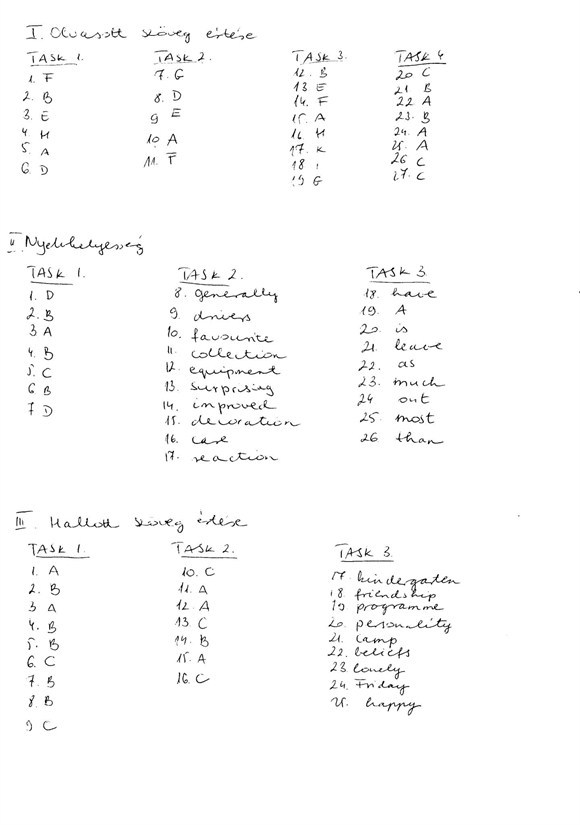 I. Olvasott szöveg értése
TASK 1.
1. F
2. B
3. E
4. H
5. A
6. D
TASK 2.
7. G
8. D
9 E
10 A
11. F
TASK 3.
12. B
13 E
14. F
15. A
16. H
17. K
18 I
19 G
TASK 4
20 C
21 B
22 A
23. B
24. A
25. A
26 C
27. C
II. Nyelvhelyesség
TASK 1.
1. D
2. B
3 A
4. B
5. C
6 B
7 D
TASK 2.
8. generally
9. drivers
10. favourite
11. collection
12. equipment
13. surprising
14. improved
15. decoration
16. care
17. reaction
TASK 3.
18. have
19. A
20. is
21. leave
22. as
23. much
24 out
25. most
26 than
III. Hallott szöveg értése
TASK 1.
1. A
2. B
3 A
4. B
5. B
6. C
7. B
8. B
9 C
TASK 2.
10. C
11. A
12. A
13 C
14. B
15. A
16. C
TASK 3.
17. kindergarten
18. friendship
19 programme
20. personality
21. camp
22. beliefs
23 lonely
24. Friday
25. happy